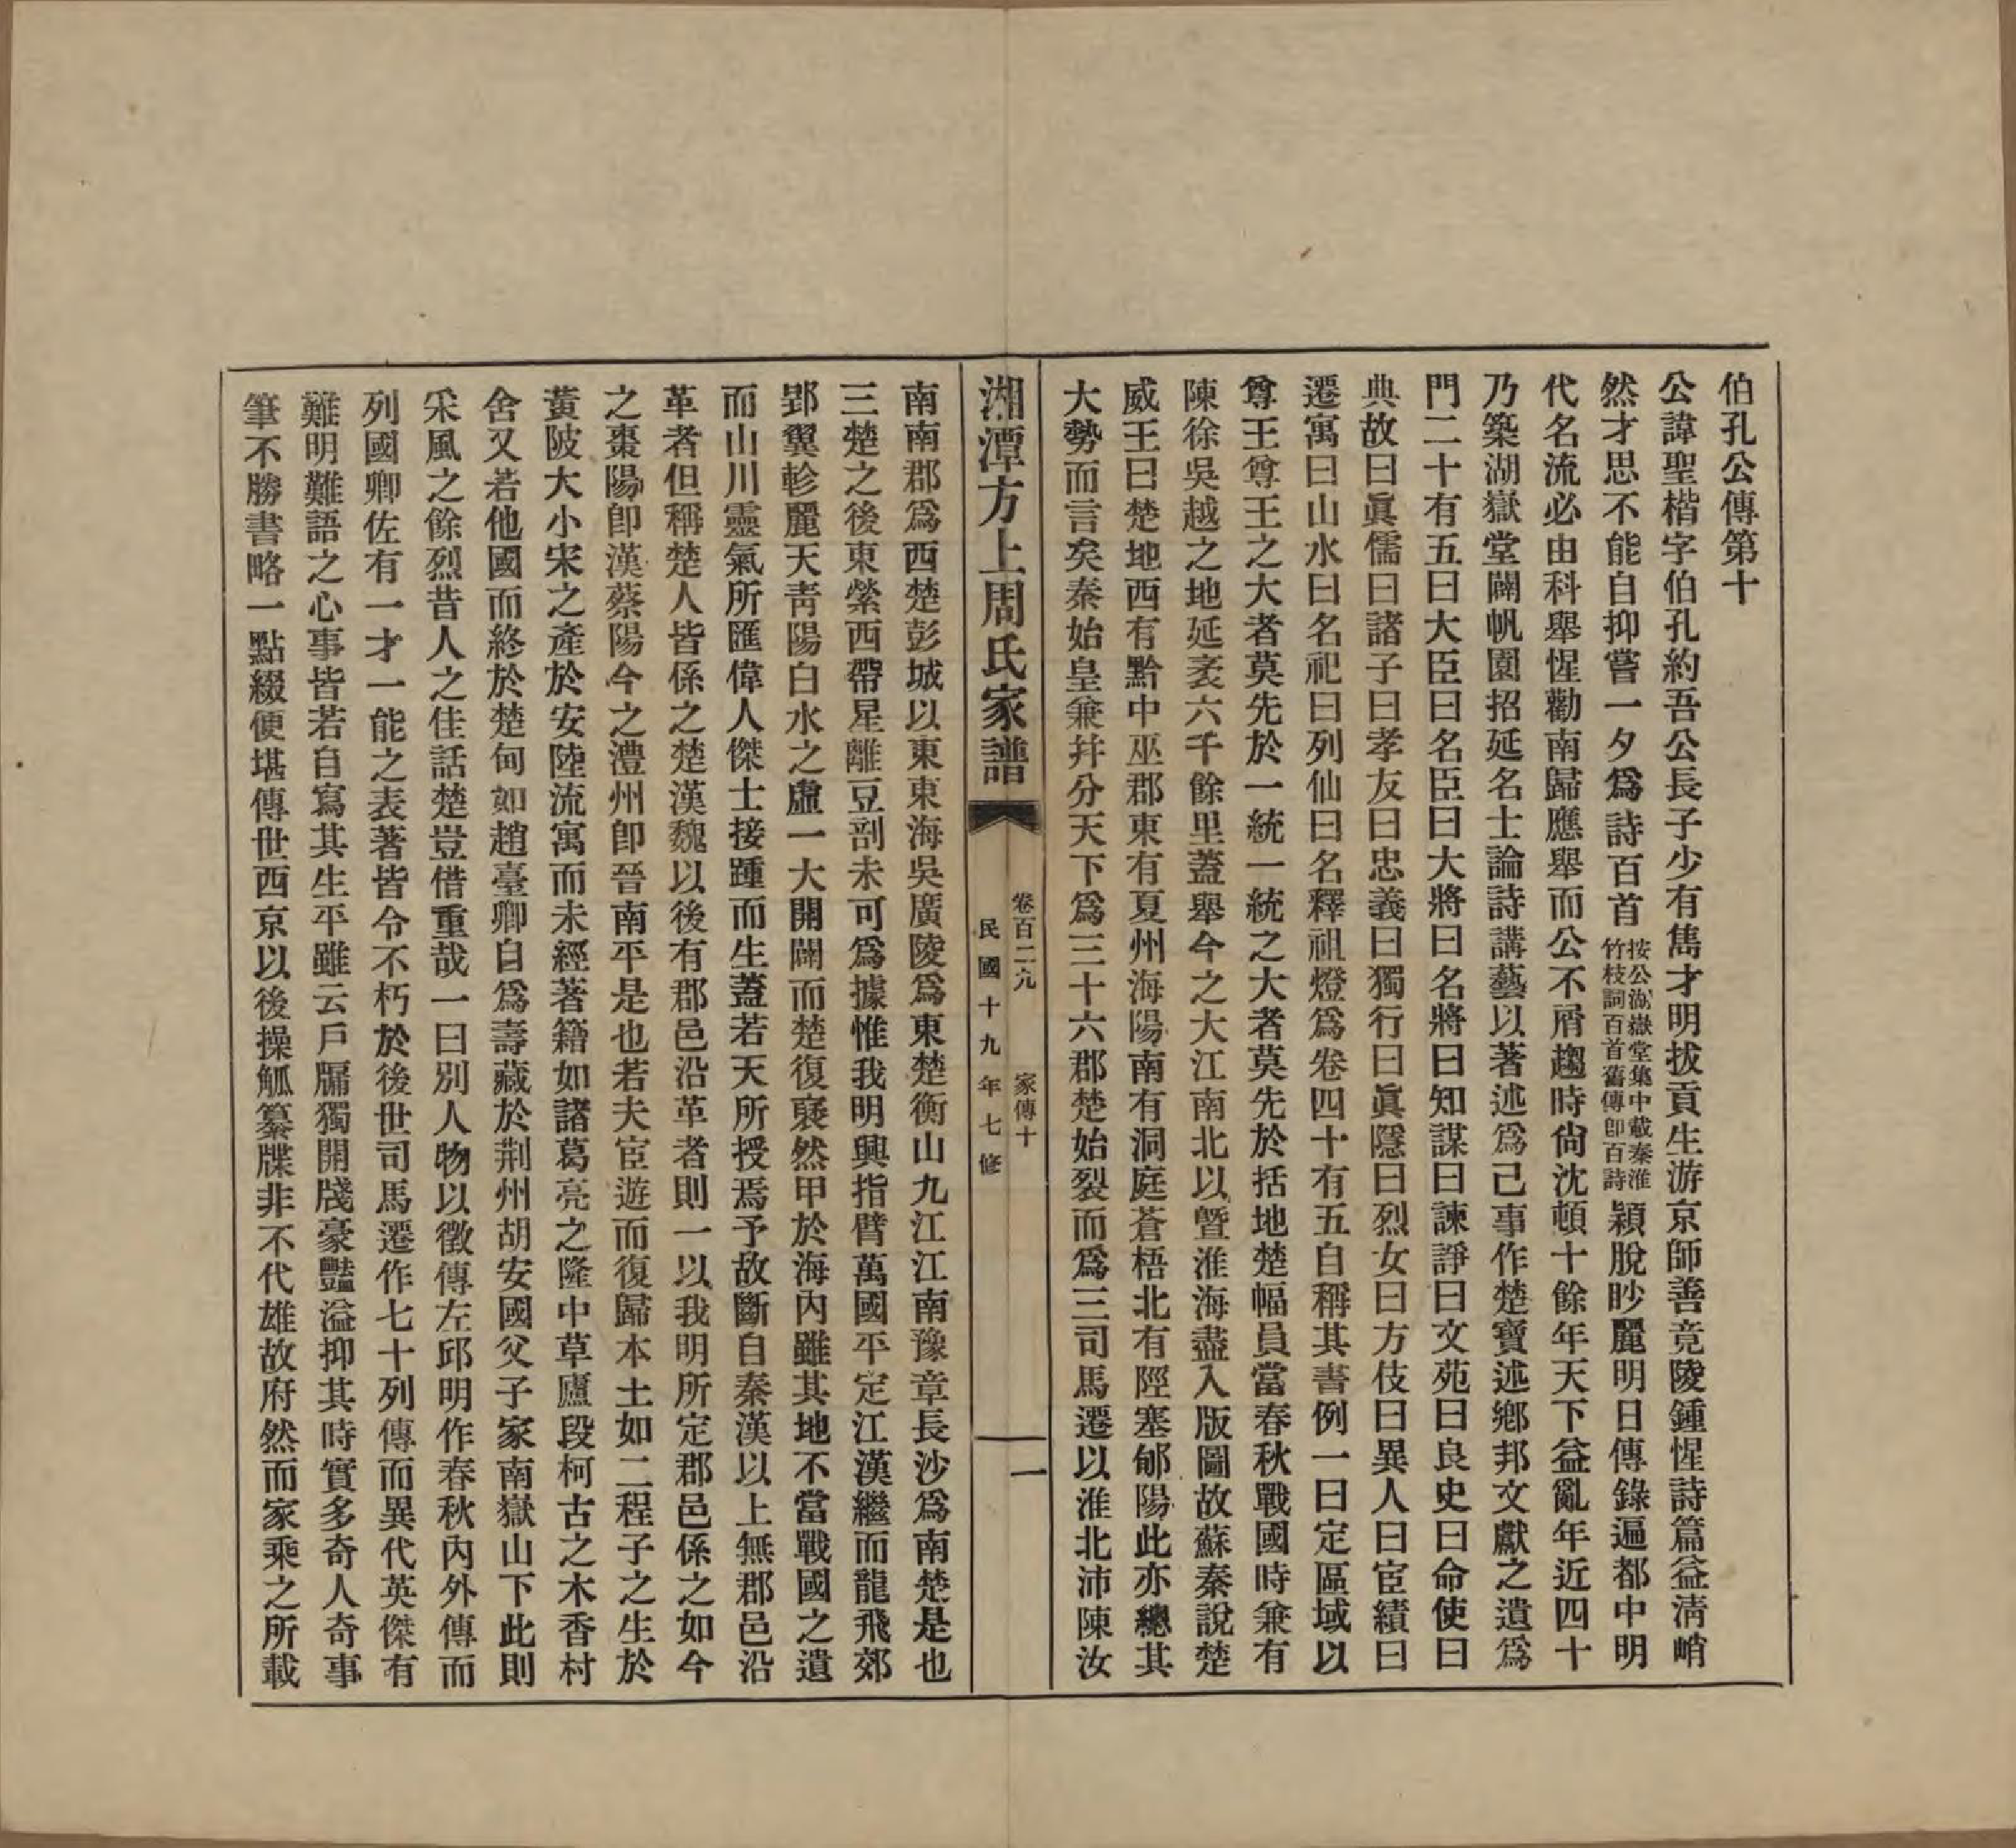 伯孔公傳第十
公諱聖楷字伯孔約吾公長子少有雋才明拔貢生游京師善竟陵鍾惺詩篇益淸峭
然才思不能自抑嘗一夕爲詩百首按公湖嶽堂集中載秦淮竹枝詞百首舊傳卽百詩穎脫眇麗明日傳錄遍都中明
代名流必由科舉惺勸南歸應舉而公不屑趨時尙沈頓十餘年天下益亂年近四十
乃築湖嶽堂闢帆園招延名士論詩講藝以著述爲己事作楚寶述鄕邦文獻之遺爲
門二十有五曰大臣曰名臣曰大將曰名將曰知謀曰諫諍曰文苑曰良史曰命使曰
典故曰眞儒曰諸子曰孝友曰忠義曰獨行曰眞隱曰烈女曰方伎曰異人曰宦績曰
遷寓曰山水曰名祀曰列仙曰名釋祖燈爲卷四十有五自稱其書例一曰定區域以
尊王尊王之大者莫先於一統一統之大者莫先於括地楚幅員當春秋戰國時兼有
陳徐吳越之地延袤六千餘里蓋舉今之大江南北以曁淮海盡入版圖故蘇秦說楚
威王曰楚地西有黔中巫郡東有夏州海陽南有洞庭蒼梧北有陘塞郇陽此亦總其
大勢而言矣秦始皇兼幷分天下爲三十六郡楚始裂而爲三司馬遷以淮北沛陳汝
湘潭方上周氏家譜
卷百二九　家傳十
民國十九年七修
一
南南郡爲西楚彭城以東東海吳廣陵爲東楚衡山九江江南豫章長沙爲南楚是也
三楚之後東縈西帶星離豆剖未可爲據惟我明興指臂萬國平定江漢繼而龍飛郊
郢翼軫麗天靑陽白水之虛一大開闢而楚復裒然甲於海內雖其地不當戰國之遺
而山川靈氣所匯偉人傑士接踵而生蓋若天所授焉予故斷自秦漢以上無郡邑沿
革者但稱楚人皆係之楚漢魏以後有郡邑沿革者則一以我明所定郡邑係之如今
之棗陽卽漢蔡陽今之澧州卽晉南平是也若夫宦遊而復歸本土如二程子之生於
黃陂大小宋之產於安陸流寓而未經著籍如諸葛亮之隆中草廬段柯古之木香村
舍又若他國而終於楚甸如趙臺卿自爲壽藏於荆州胡安國父子家南嶽山下此則
采風之餘烈昔人之佳話楚豈借重哉一曰別人物以徵傳左邱明作春秋內外傳而
列國卿佐有一才一能之表著皆令不朽於後世司馬遷作七十列傳而異代英傑有
難明難語之心事皆若自寫其生平雖云戶牖獨開牋豪豔溢抑其時實多奇人奇事
筆不勝書略一點綴便堪傳世西京以後操觚纂牒非不代雄故府然而家乘之所載